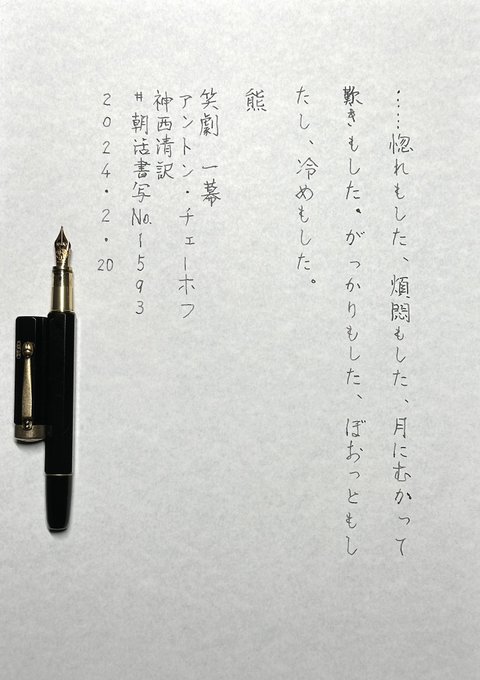 ……惚れもした、煩悶もした、月にむかって
歎きもした。がっかりもした、ぼおっともし
たし、冷めもした。
熊
笑劇 一幕
アントン・チェーホフ
神西清訳
#朝活書写No.1593
2024.2.20